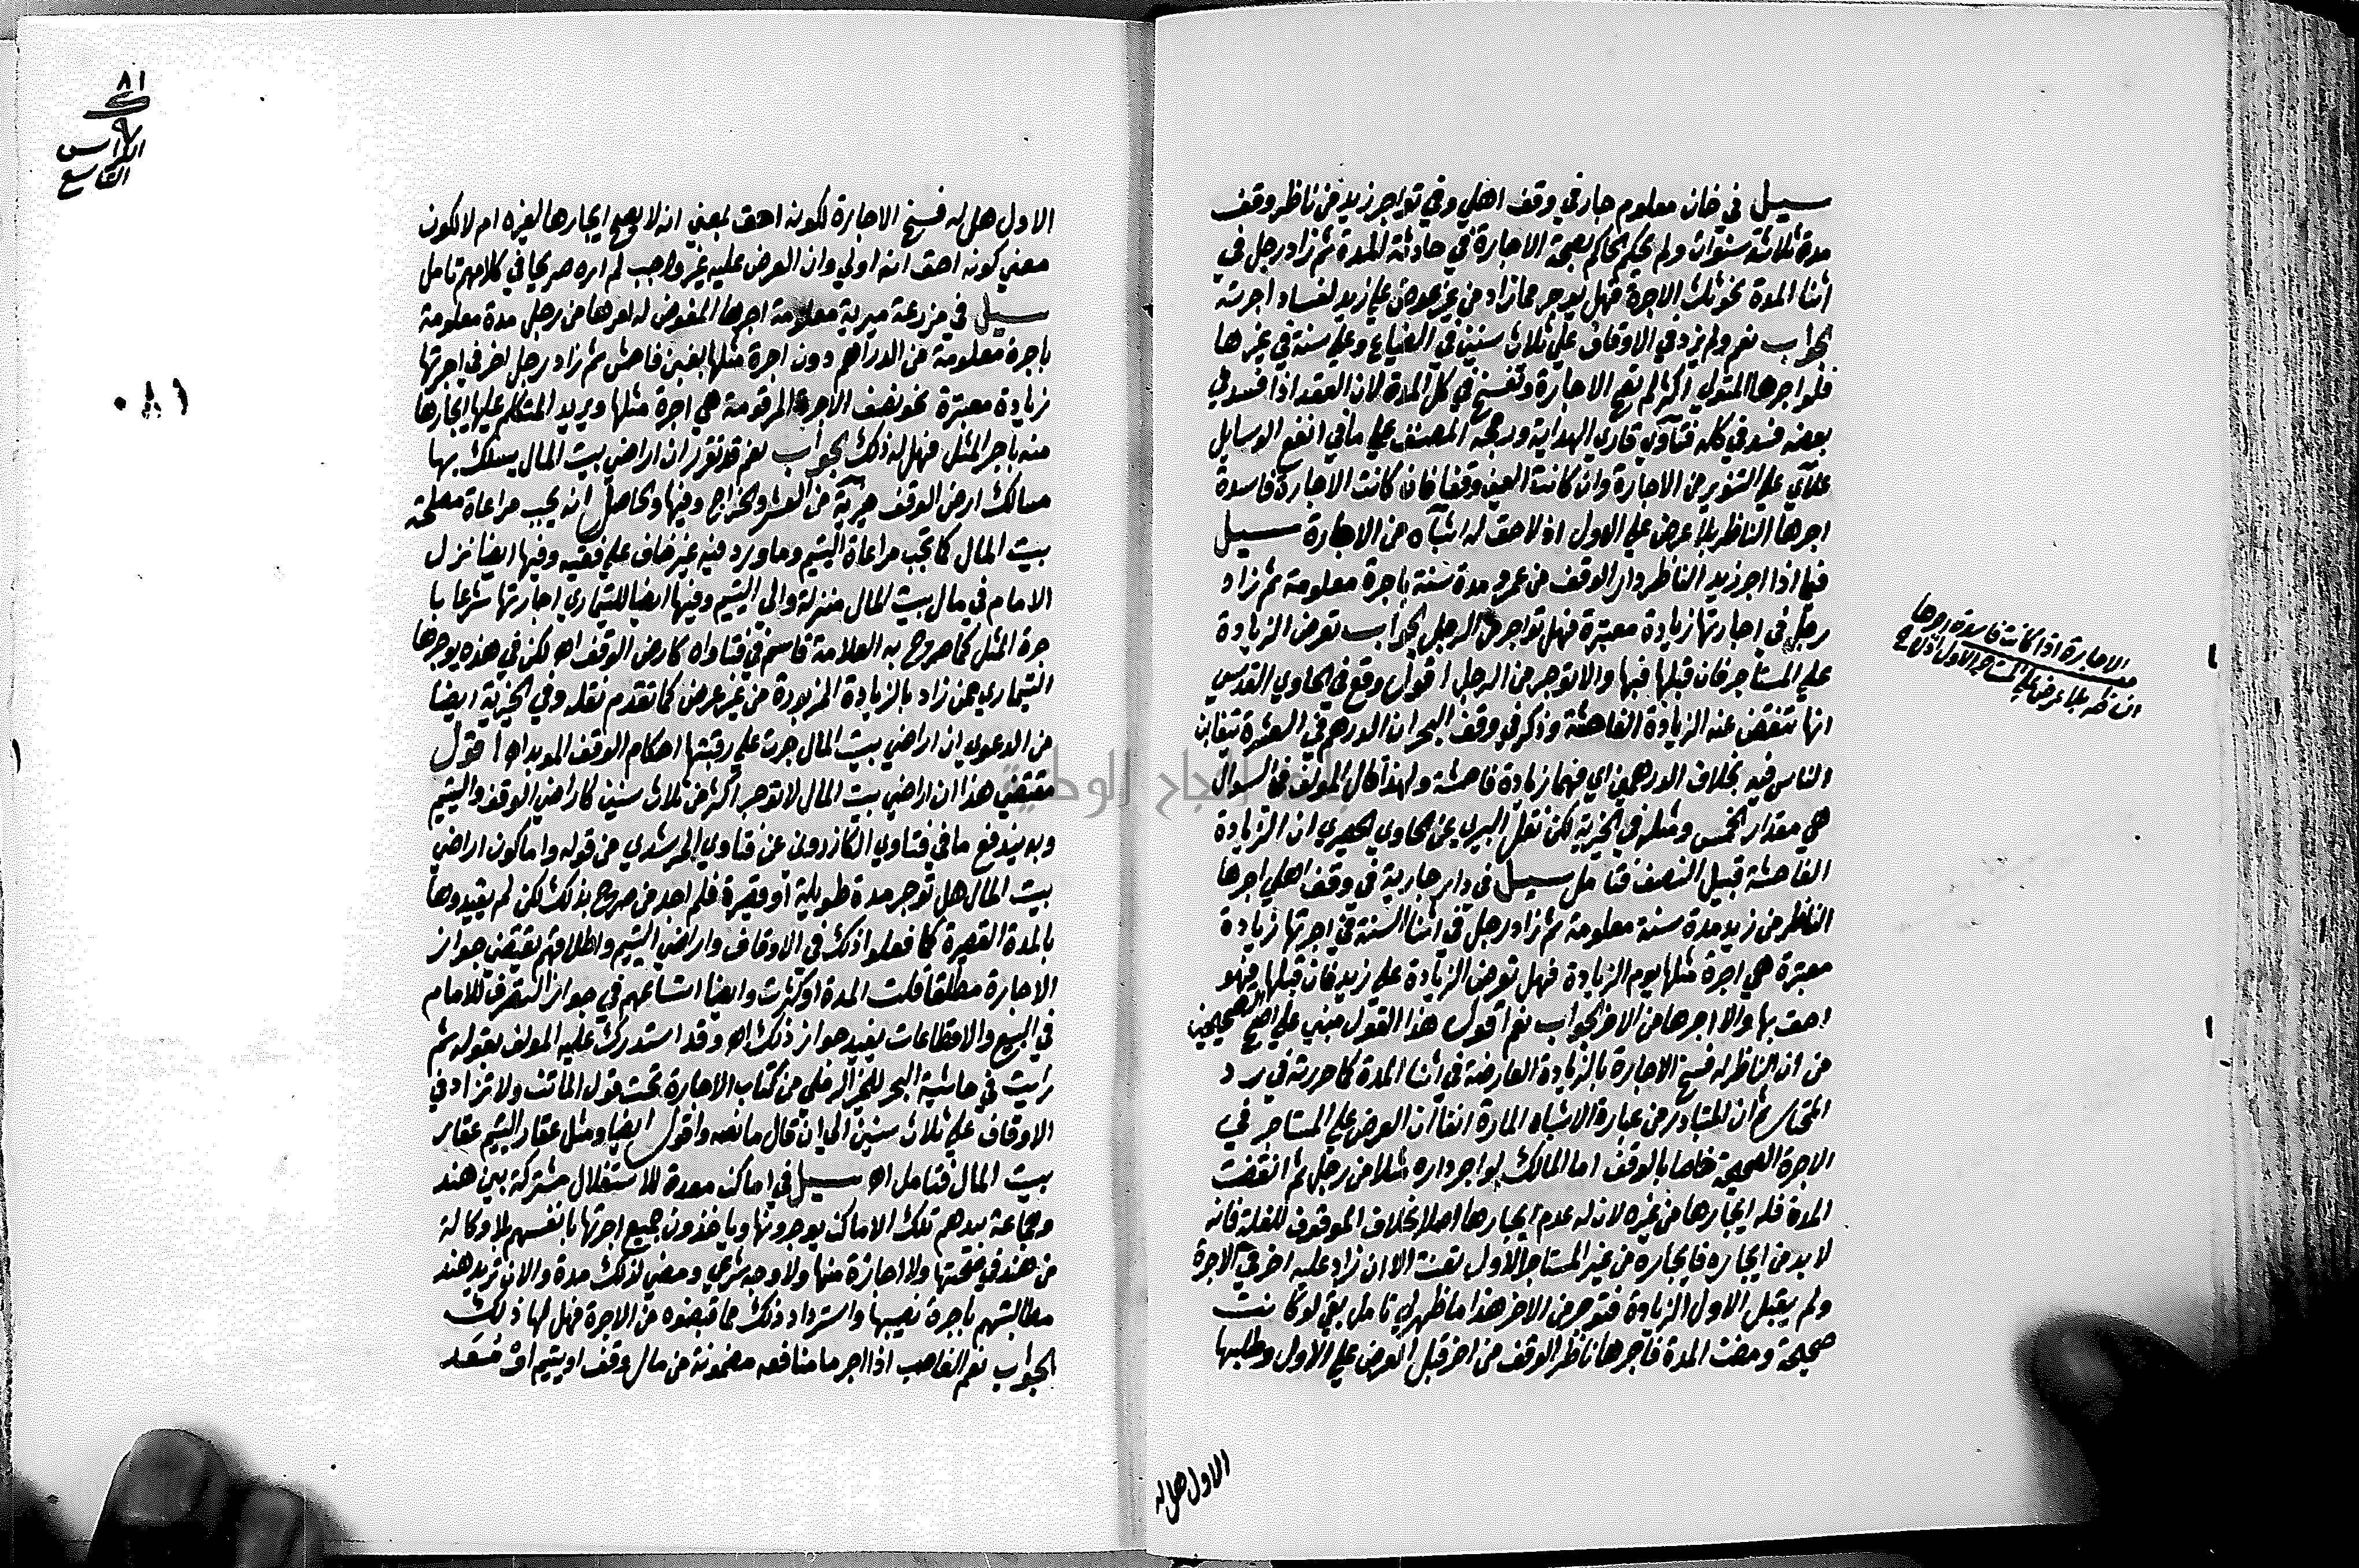 سيل في خان معلوم جار في وقف اهلي وفي تواجر زيد من ناظر وقفه
مدة ثلاثة سنوات ولم يحكم حاكم بصحة الاجارة في حادثة المدة ثم زاد رجل في
اثنا المدة نحو ثلث الاجرة فهل يوجر ممن زاد من غير عرض على زيد لفساد اجرته
الجواب نعم ولم يزد في الاوقاف على ثلاث سنين في الضياع وعلى سنة في غيرها
فلو اجرها المتولي اكثر لم تصح الاجارة وتفسخ في كل المدة لان العقد اذا فسد في
بعضه فسد في كله فتاوي قاري الهداية ورجحه المصنف على ما في انفع الوسايل
علائي على التنوير من الاجارة وان كانت العين وقفا فان كانت الاجارة فاسدة
اجرها الناظر بلا عرض على الاول اذ لا حق له اشباه من الاجارة سيل
فيما اذا اجر زيد الناظر دار الوقف من عمرو مدة سنة باجرة معلومة ثم زاد
رجل في اجارتها زيادة معتبرة فهل تواجر من الرجل الجواب تعرض الزيادة
على المستاجر فان قبلها فبها والا توجر من الرجل اقول وقع في الحاوي القدسي
انها تنقض عند الزيادة الفاحشة وذكر في وقف البحر ان الدرهم في العشرة يتغابن
الناس فيه بخلاف الدرهمين اي فهما زيادة فاحشة ولهذا قال المولف في السوال
هي مقدار الخمس ومثله في الخيرية لكن نقل البيري عن الحاوي الحصيري ان الزيادة
الفاحشة قبيل النصف فتامل سيل في دار جارية في وقف اهلي اجرها
الناظر من زيد مدة سنة معلومة ثم زاد رجل في اثنا السنة في اجرتها زيادة
معتبرة هي اجرة مثلها يوم الزيادة فهل تعرض الزيادة على زيد فان قبلها فهو
احق بها والا اجرها من الاخر الجواب نعم اقول هذا القول مبني على اصح الصحيحين
من ان الناظر له فسخ الاجارة بالزيادة العارضة في اثنا المدة كما حررته في رد
المحتار ثم ان المتبادر من عبارة الاشباه المارة انفا ان العرض على المستاجر في
الاجرة الصحيحة خاصا بالوقف اما المالك لو اجر داره مثلا من رجل ثم انقضت
المدة فله ايجارها من غيره لان له عدم ايجارها اصلا بخلاف الموقوف للغلة فانه
لا بد من ايجاره فايجاره من غير المستاجر الاول تعنت الا ان زاد عليه اخر في الاجرة
ولم يقبل الاول الزيادة فتوجر من الاخر هذا ما ظهر لي تامل بقي لو كانت
صحيحة ومضت المدة فآجرها ناظر الوقف من اخر قبل العرض على الاول وطلبها
الاجارة اذا كانت فاسدة اجرها
الناظر بلا عرض على المستاجر الاول
الاول هل له
٨١
الكراس
التاسع
٨١
الاول هل له فسخ الاجارة لكونه احق بمعني انه لا يصح ايجارها لغيره ام لا لكون
معني كونه احق انه اولي وان العرض عليه غير واجب لم اره صريحا في كلامهم تامل
سيل في مزرعة ميرية معلومة اجرها المفوض له امرها من رجل مدة معلومة
باجرة معلومة من الدراهم دون اجرة مثلها بغبن فاحش ثم زاد رجل اخر في اجرتها
زيادة معتبرة نحو نصف الاجرة المرقومة هي اجرة مثلها ويريد المتكلم عليها ايجارها
منه باجر المثل فهل له ذلك الجواب نعم قد تقرر ان اراضي بيت المال يسلك بها
مسالك ارض الوقف خيرية من العشر والخراج وفيها والحاصل انه يجب مراعاة مصلحة
بيت المال كما تجب مراعاة اليتيم وما ورد فيه غير خاف على فقيه وفيها ايضا نزل
الامام في مال بيت المال منزلة والي اليتيم وفيها ايضا للتيماري اجارتها شرعا با
جرة المثل كما صرح به العلامة قاسم في فتاواه كارض الوقف اه لكن في هذه يوجرها
التيماري ممن زاد بالزيادة المزبورة من غير عرض كما تقدم نقله وفي الخيرية ايضا
من الدعوي ان اراضي بيت المال جرت على رقبتها احكام الوقف الموبد اه اقول
مقتضي هذا ان اراضي بيت المال لا توجر اكثر من ثلاث سنين كاراضي الوقف واليتيم
وبه يندفع ما في فتاوي الكازروني عن فتاوي المرشدي من قوله واما كون اراضي
بيت المال هل توجر مدة طويلة او قصيرة فلم اجد من صرح بذلك لكن لم يقيدوها
بالمدة القصيرة كما فعلوا ذلك في الاوقاف واراضي اليتيم واطلاقهم يقتضي جواز
الاجارة مطلقا قلت المدة او كثرت وايضا اتساعهم في جواز التصرف للامام
في البيع والاقطاعات يفيد جواز ذلك اه وقد استدرك عليه المولف بقوله ثم
رايت في حاشية البحر للخير الرملي من كتاب الاجارة تحت قول الماتن ولا تزاد في
الاوقاف على ثلاث سنين الي ان قال ما نصه واقول ايضا ومثل عقار اليتيم عقار
بيت المال فتامل اه سيل في اماكن معدة للاستغلال مشتركة بين هند
وجماعة بيدهم تلك الاماكن يوجرونها وياخذون جميع اجرتها بانفسهم بلا وكالة
من هند في حصتها ولا اجازة منها ولا وجه شرعي ومضي لذلك مدة والان تريد هند
مطالبتهم باجرة نصيبها واسترداد ذلك مما قبضوه من الاجرة فهل لها ذلك
الجواب نعم الغاصب اذا اجر ما منافعه مضمونة من مال وقف او يتيم او معد